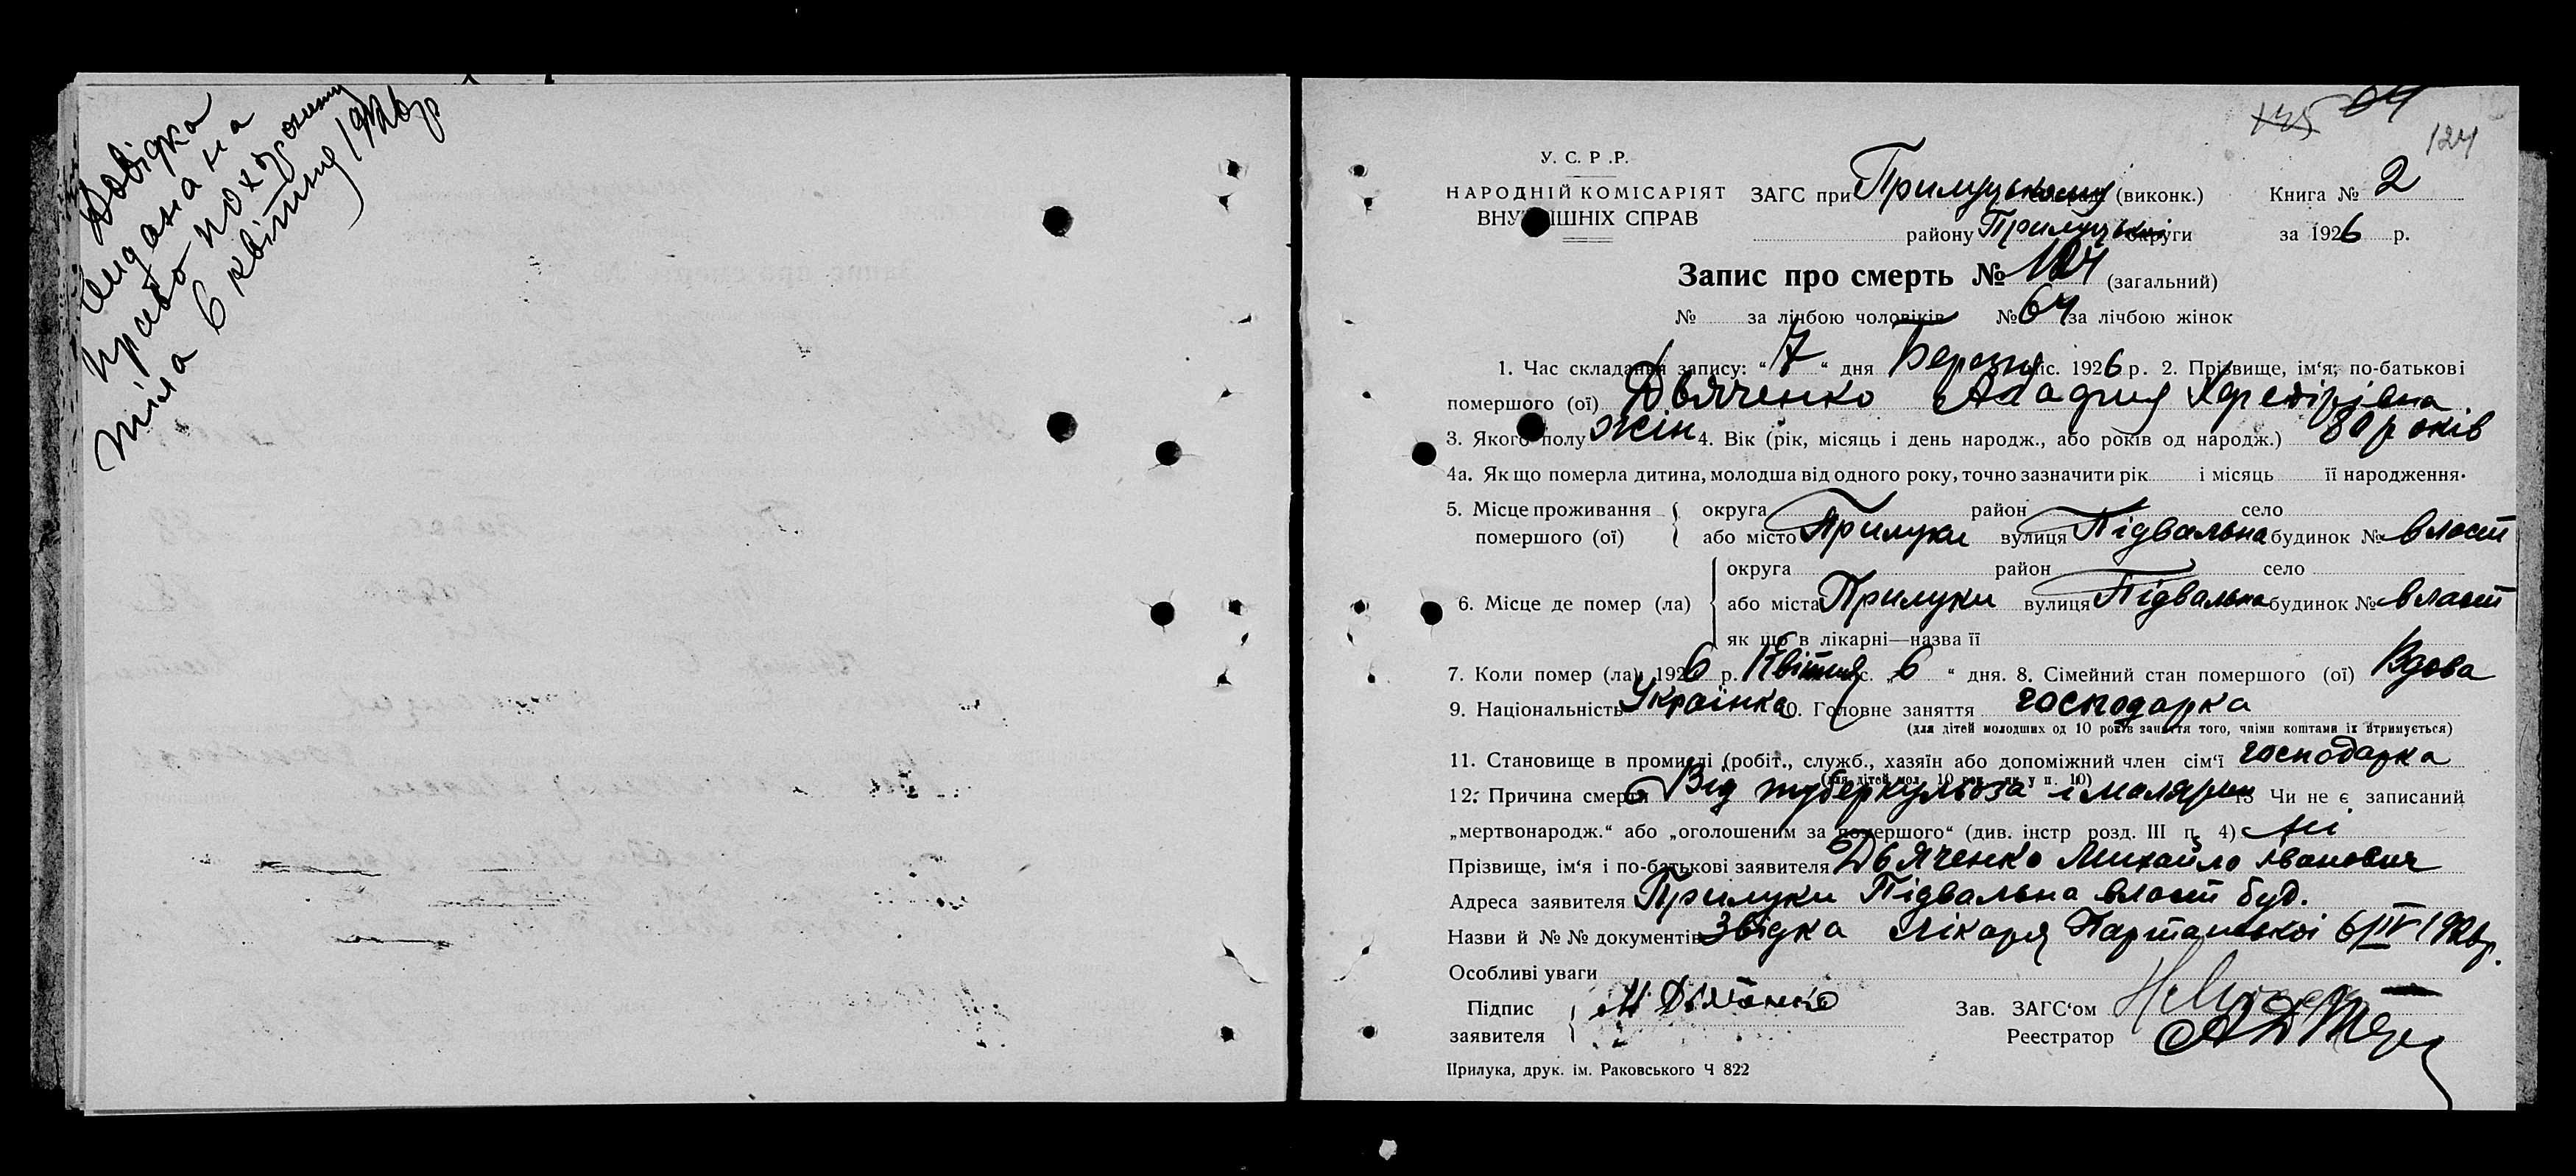 Довідка
видана на
право похорону
тіла 6 квітня 1926 р
64
124
У. С. Р .Р.
НАРОДНІЙ КОМІСАРІЯТ
ВНУТРІШНІХ СПРАВ
ЗАГС при Прилуцькому (виконк.)
району Прилуцької округи
Книга № 2
за 1926 р.
Запис про смерть № 124 (загальний)
№ за лічбою чоловіків № 64 за лічбою жінок
1. Час складання запису: “ 7 “ дня Березня міс. 1926 р. 2. Прізвище, ім‘я; по-батькові
померлого (ої) Дьяченко
3. Якого полу жін 4. Вік (рік, місяць і день народж., або років од народж.) 80 років
4а. Як що померла дитина, молодша від одного року, точно зазначити рік і місяць її народження.
5. Місце проживання округа район село
помершого (ої) або місто Прилуки вулиця Підвальна будинок № власт
округа район село
6. Місце де помер (ла) або міста Прилуки вулиця Підвальна будинок № власт
як що в лікарні—назва її
7. Коли помер (ла) 1926 р. Квітня с. „ 6 “ дня. 8. Сімейний стан помершого (ої) Вдова
9. Національність Українка 10. Головне заняття господарка
(для дітей молодших од 10 років заняття того, чиїми коштами їх втримується)
11. Становище в промислі (робіт., служб., хазяїн або допоміжний член сім‘ї господарка
(для дітей мол. 10 рок. як у п. 10)
12. Причина смерти Від туберкульоза і малярии 13 Чи не є записаний
„мертвонародж.“ або „оголошеним за помершого“ (див. інстр розд. III п. 4) ні
Прізвище, ім‘я і по-батькові заявителя Дьяченко Михайло Іванович
Адреса заявителя Прилуки Підвальна власт буд.
Назви й №№ документів Звідка лікаря 6/IV 1926р.
Особливі уваги
Підпис М Дьяченко Зав. ЗАГС‘ом
заявителя Реестратор
Прилука, друк. ім. Раковського Ч 822